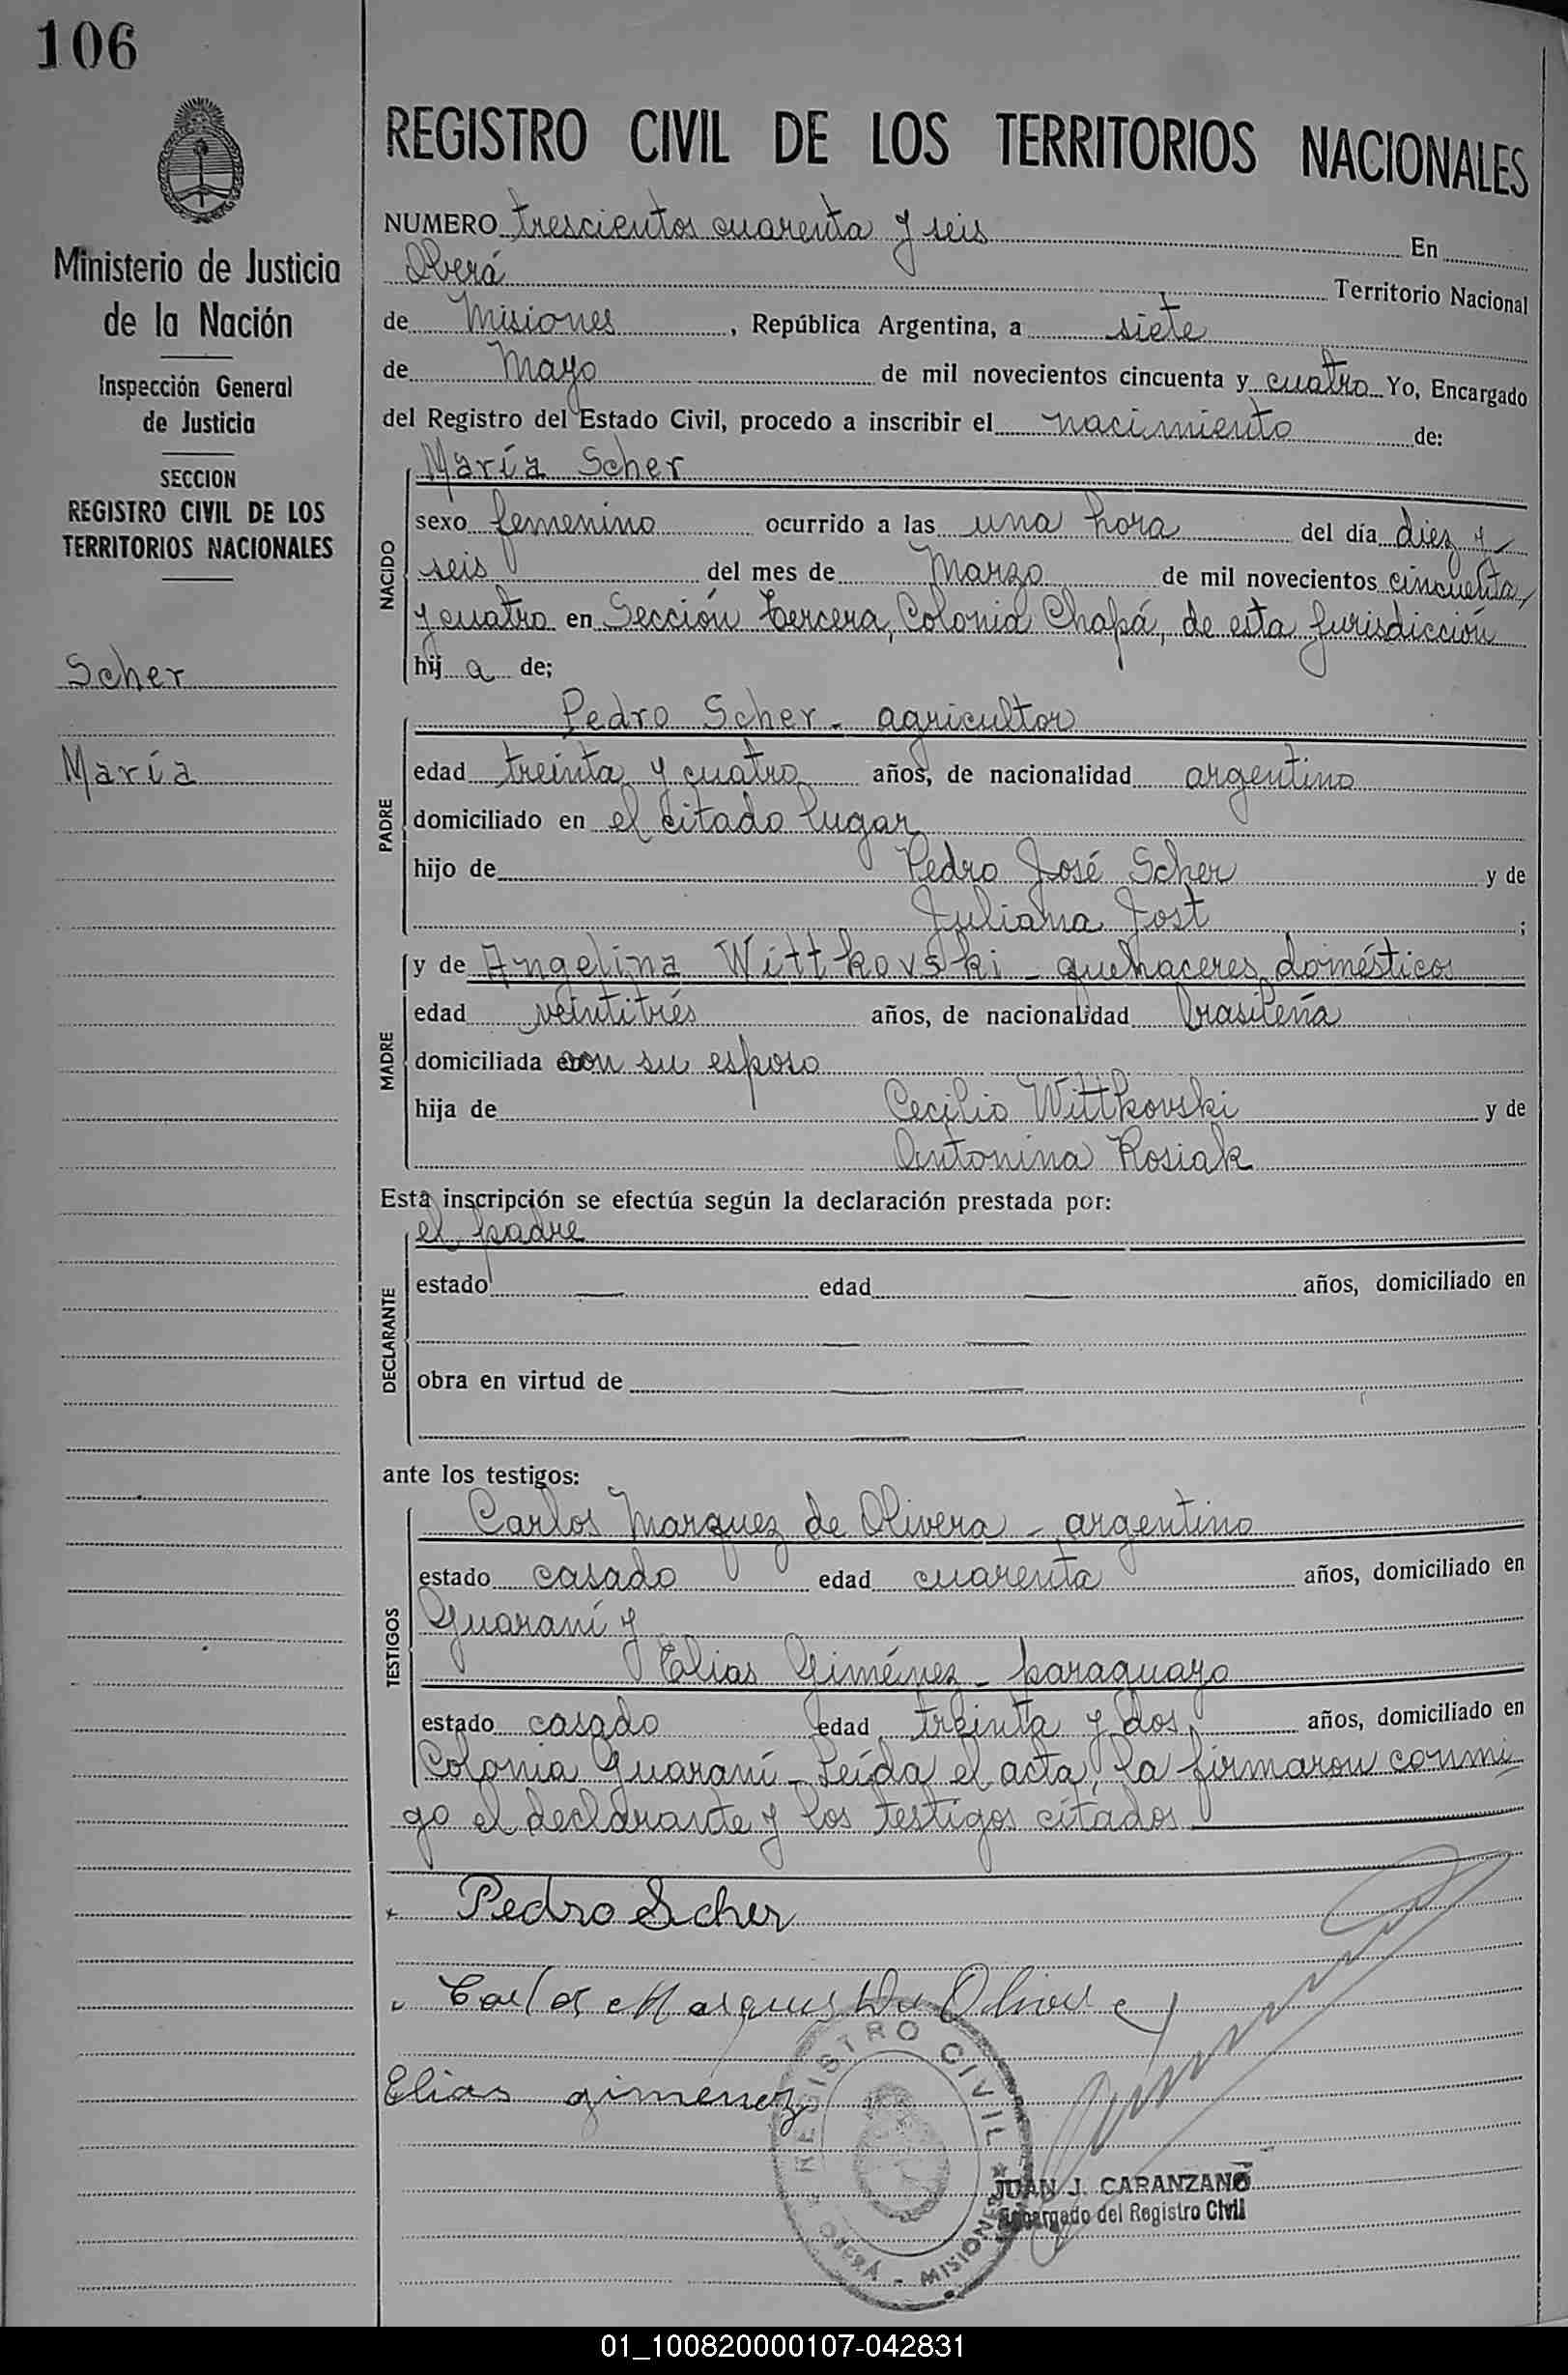 106
REGISTRO CIVIL DE LOS TERRITORIOS NACIONALES
Ministerio de Justicia
de la Nación
Inspección General
de Justicia
SECCION
REGISTRO CIVIL DE LOS
TERRITORIOS NACIONALES
Scher
María
NUMERO trescientos cuarenta y seis En
Oberá Territorio Nacional
de Misiones, República Argentina, a siete
de Mayo de mil novecientos cincuenta y cuatro Yo, Encargado
del Registro del Estado Civil, procedo a inscribir el nacimiento de:
María Scher
NACIDO
sexo femenino ocurrido a las una hora del día diez y
seis del mes de Marzo de mil novecientos cincuenta
y cuatro en Sección tercera, Colonia Chapá, de esta jurisdicción
hij a de;
Pedro Scher - agricultor
PADRE
edad treinta y cuatro años, de nacionalidad argentino
domiciliado en el citado lugar
hijo de Pedro José Scher y de
Juliana Jost ;
y de Angelina Wittkovski - quehaceres domésticos
MADRE
edad veintitrés años, de nacionalidad brasileña
domiciliada con su esposo
hija de Cecilio Wittkovski y de
Antonina Rosiak
Esta inscripción se efectúa según la declaración prestada por:
el padre
DECLARANTE
estado — edad — años, domiciliado en
— —
obra en virtud de — —
— —
ante los testigos:
Carlos Marquez de Olivera - argentino
TESTIGOS
estado casado edad cuarenta años, domiciliado en
Guaraní y
Elias Giménez - paraguayo
estado casado edad treinta y dos años, domiciliado en
Colonia Guaraní - Leída el acta, la firmaron conmi
go el declarante y los testigos citados
Pedro Scher
Carlos Marques De Olivera
Elias gimenez
REGISTRO CIVIL
OBERÁ - MISIONES
JUAN J. CARANZANO
Encargado del Registro Civil
01_100820000107-042831